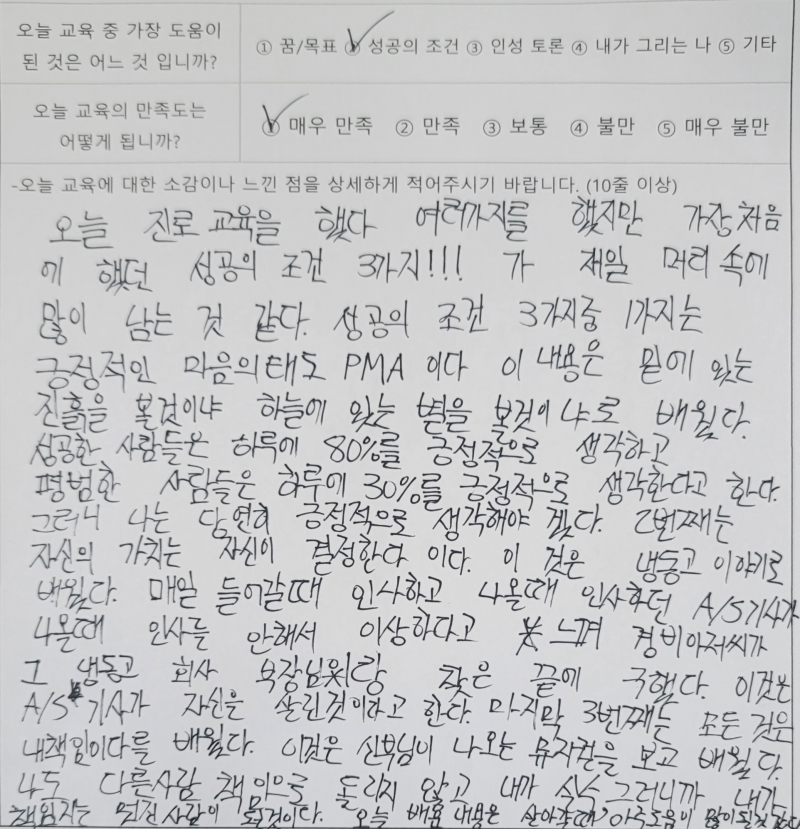 오늘 교육 중 가장 도움이
된 것은 어느 것 입니까?
① 꿈/목표 ② 성공의 조건 ③ 인성 토론 ④ 내가 그리는 나 ⑤ 기타
오늘 교육의 만족도는
어떻게 됩니까?
① 매우 만족 ② 만족 ③ 보통 ④ 불만 ⑤ 매우 불만
-오늘 교육에 대한 소감이나 느낀 점을 상세하게 적어주시기 바랍니다. (10줄 이상)
오늘 진로 교육을 했다 여러가지를 했지만 가장 처음
에 했던 성공의 조건 3가지!!! 가 제일 머리 속에
많이 남는 것 같다. 성공의 조건 3가지중 1가지는
긍정적인 마음의태도 PMA 이다 이 내용은 밑에 있는
진흙을 볼것이냐 하늘에 있는 별을 볼것이냐로 배웠다.
성공한 사람들은 하루에 80%를 긍정적으로 생각하고
평범한 사람들은 하루에 30%를 긍정적으로 생각한다고 한다.
그러니 나는 당연히 긍정적으로 생각해야 겠다. 2번째는
자신의 가치는 자신이 결정한다 이다. 이 것은 냉동고 이야기로
배웠다. 매일 들어갈때 인사하고 나올때 인사하던 A/S기사가
나올때 인사를 안해서 이상하다고 느껴 경비아저씨가
그 냉동고 회사 부장님이랑 찾은 끝에 구했다. 이것은
A/S 기사가 자신을 살린것이라고 한다. 마지막 3번째는 모든것은
내책임이다를 배웠다. 이것은 신부님이 나오는 뮤지컬을 보고 배웠다.
나도 다른사람 책임으로 돌리지 않고 내가 그러니까 내가
책임지는 멋진사람이 될것이다. 오늘 배운 내용은 살아갈때 아주도움이 많이될것 같다